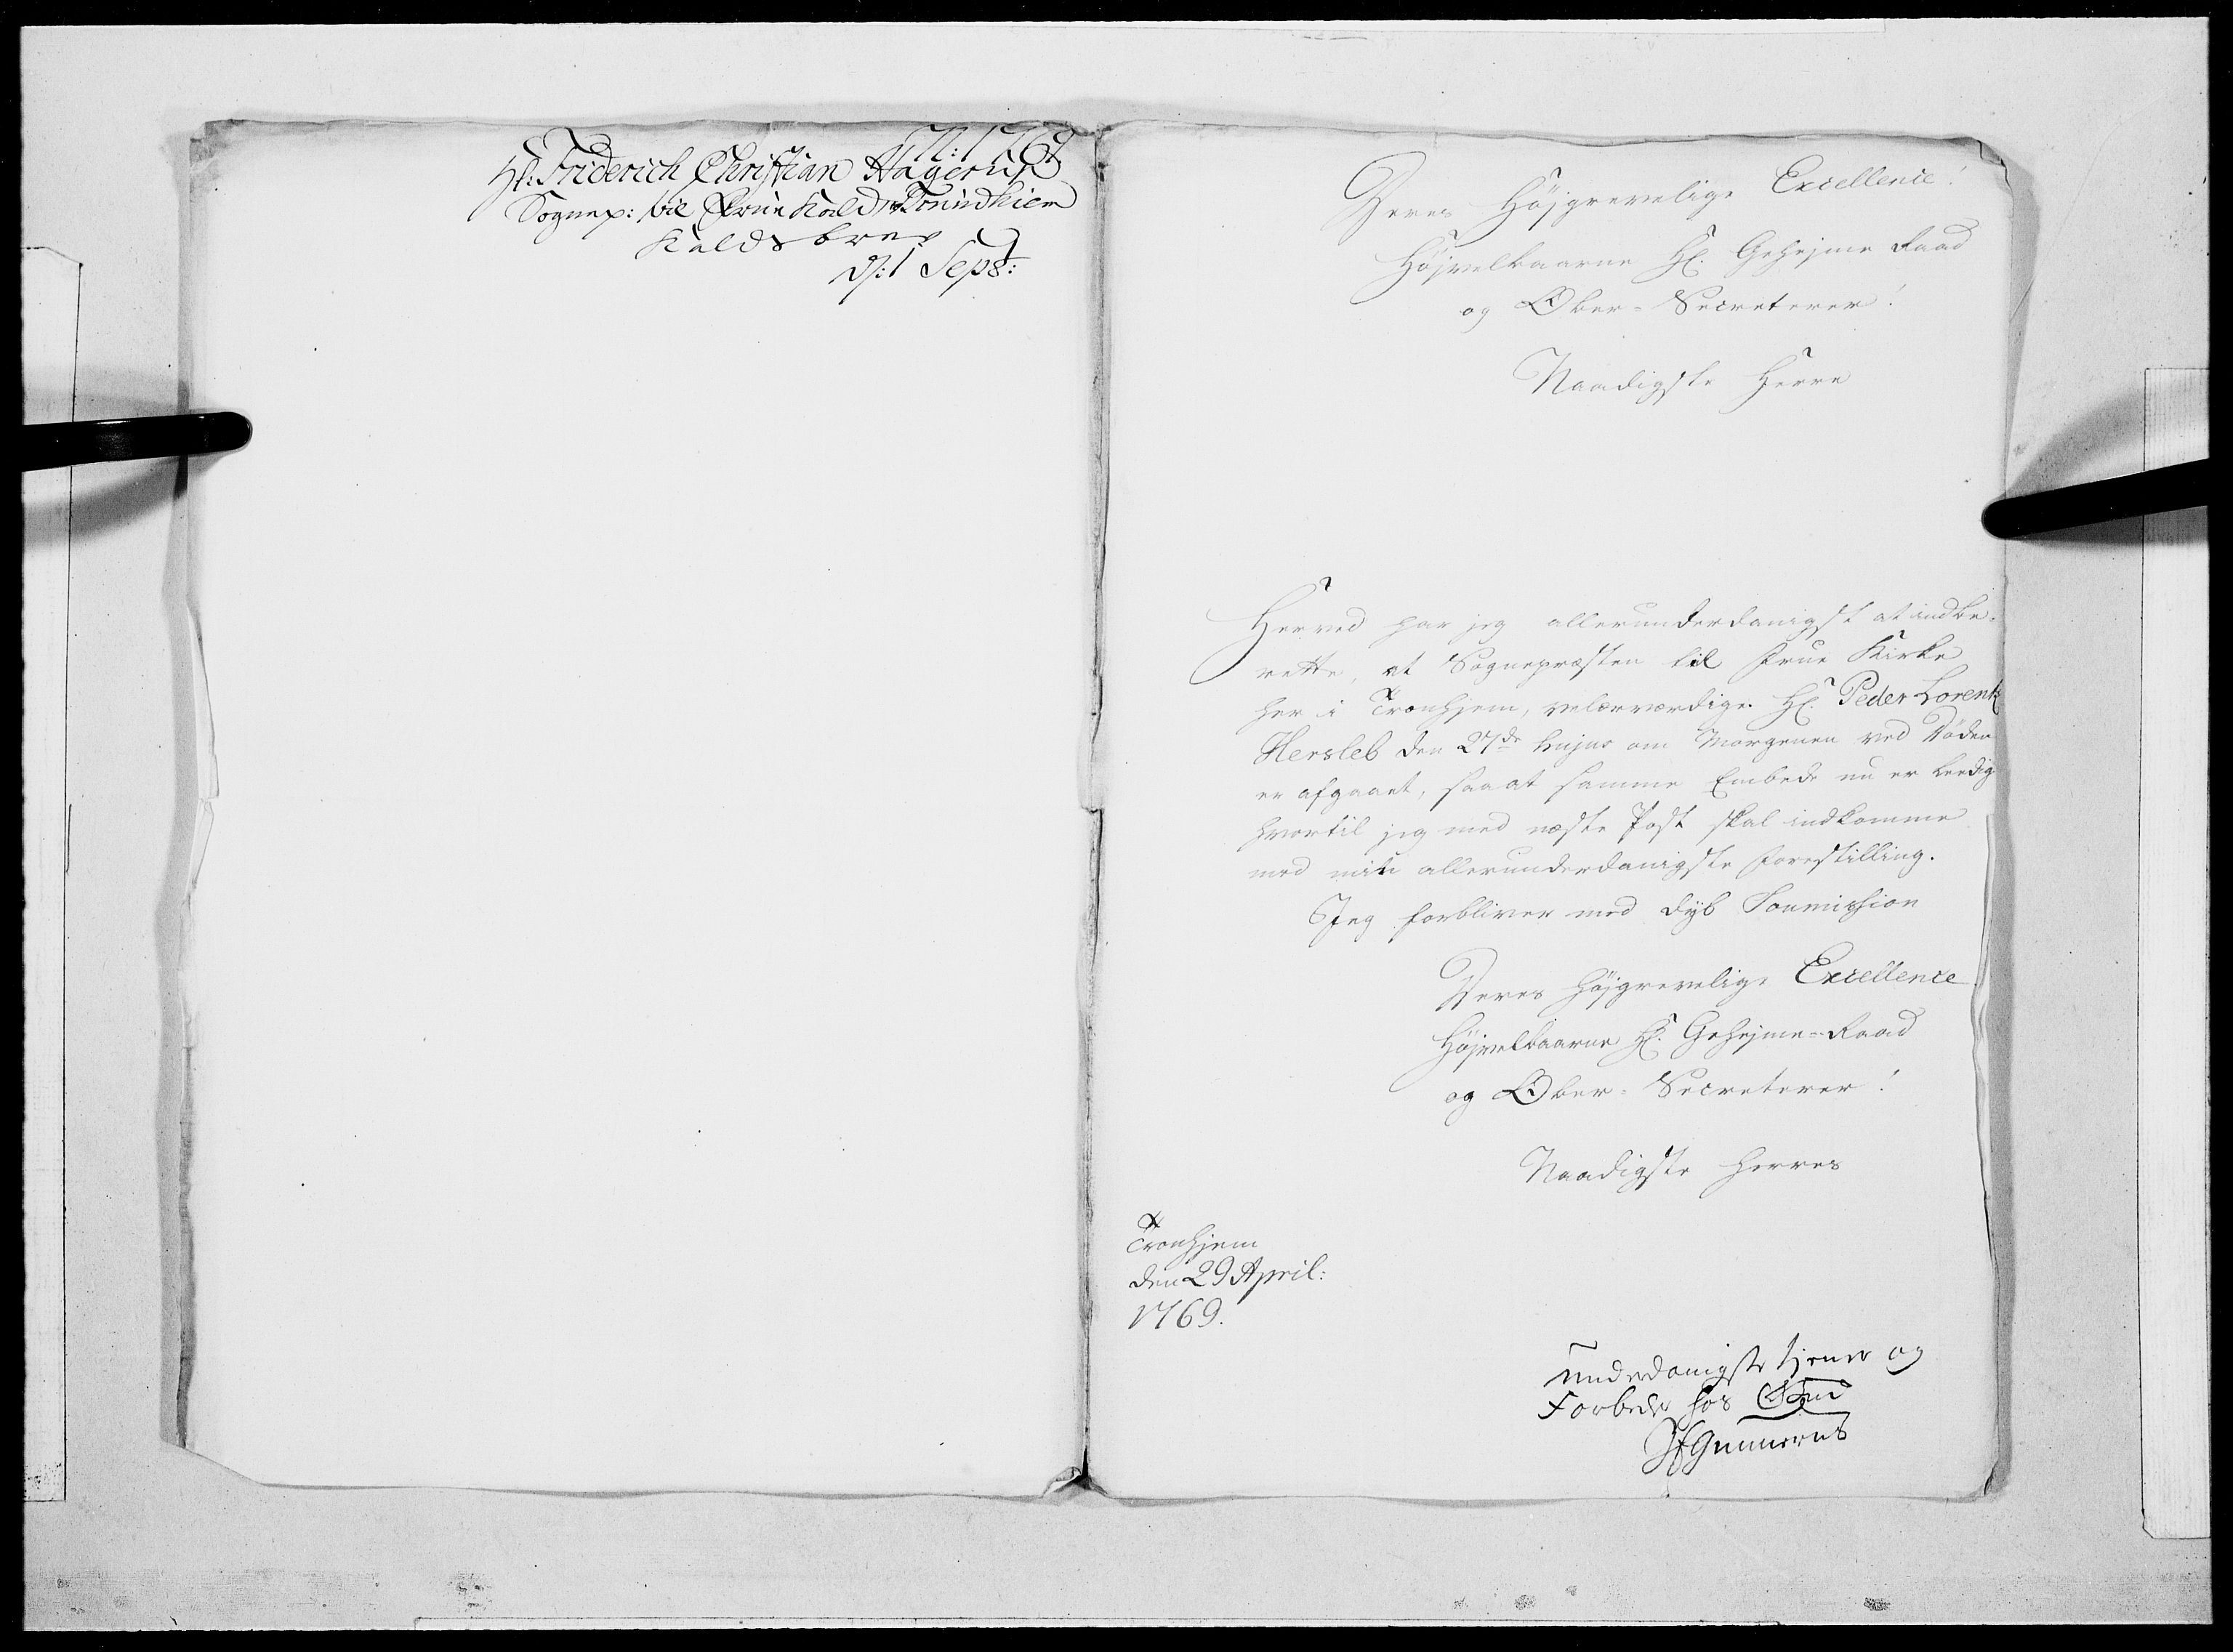 N: 1769
Hl: Friderich Christian Hagerup
Sognep: til Frue Kald i Trundhiem
Kaldsbrev
d: 1 Sept:
Deres Højgrevelige Excellence!
Højvelbaarne Hl. Gehejme Raad
og Ober-Secreterer!
Naadigste Herre
Herved har jeg allerunderdanigst at indbe-
rette, at Sognepræsten til Frue Kirke
her i Tronhjem, velærværdige Hl. Peder Lorentz
Hersleb den 27de hujus om Morgenen ved Døden
er afgaaet, saa at samme Embede nu er leedig
hvortil jeg med næste Post skal indkomme
med min allerunderdanigste Forestilling.
Jeg forbliver med dyb Soumission
Deres Højgrevelige Excellence
Højvelbaarne Hl. Gehejme-Raad
og Ober-Secreterer!
Naadigste Herres
Tronhjem
den 29 April:
1769.
underdanigste tjener og
Forbeder hos Gud
JEGunnerus